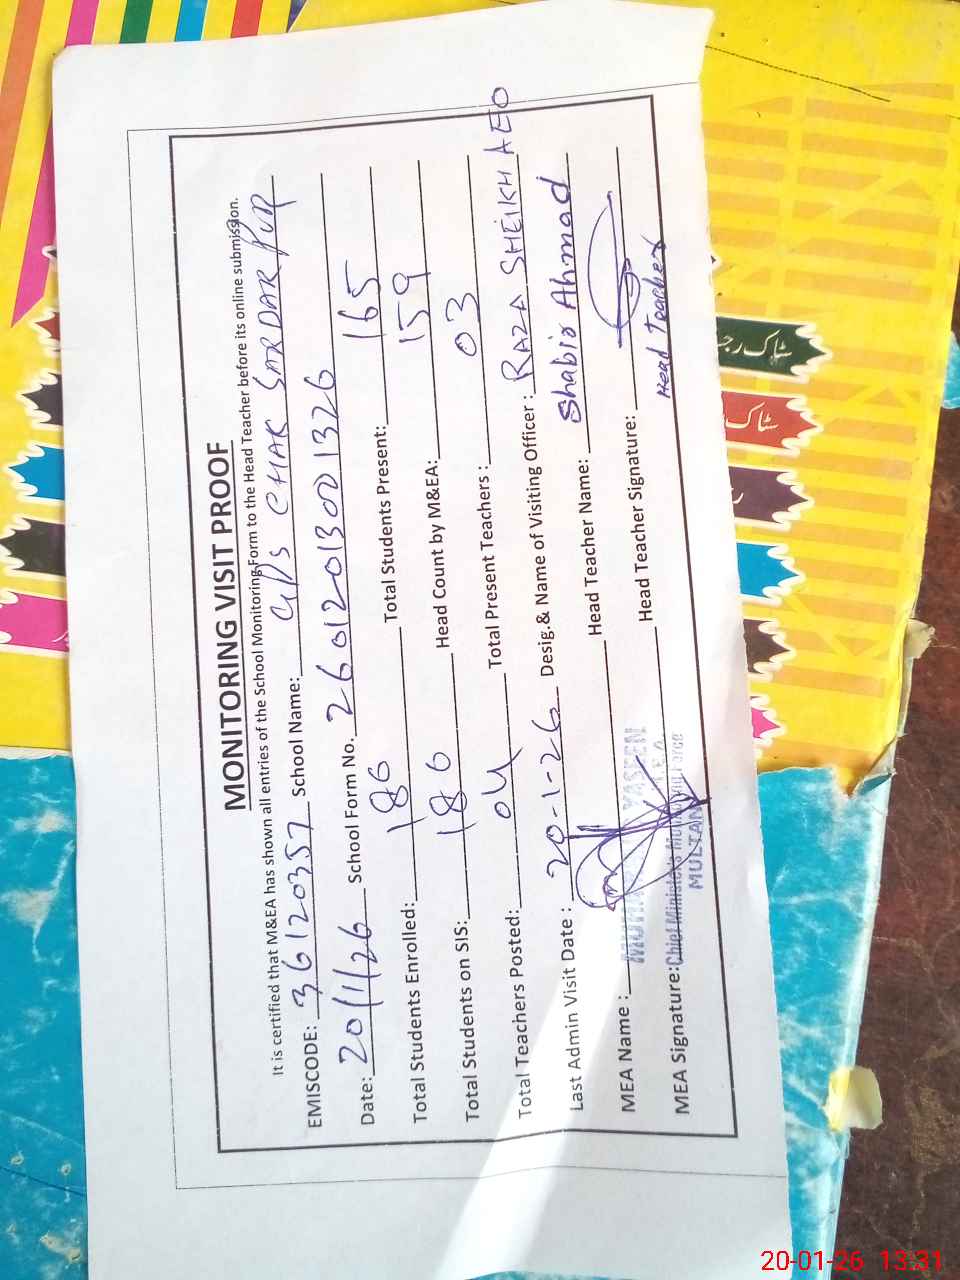 MONITORING VISIT PROOF
It is certified that M&EA has shown all entries of the School Monitoring Form to the Head Teacher before its online submission.
EMISCODE: 36120357 School Name: GPS CHAK SARDAR PUR
Date: 20/1/26 School Form No. 260120130013 26
Total Students Enrolled: 186 Total Students Present: 165
Total Students on SIS: 186 Head Count by M&EA: 159
Total Teachers Posted: 04 Total Present Teachers: 03
Last Admin Visit Date: 20-1-26 Desig.& Name of Visiting Officer: RAZA SHEIKH AEO
MEA Name: Head Teacher Name: Shabir Ahmad
YASEEN
MEA Signature: Head Teacher Signature:
Chief Minister's Monitoring Force
MULTAN
Head Teacher
سٹاک رجسٹر
سٹاک
20-01-26 13:31